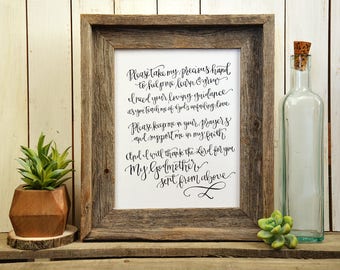 Please take my precious hand
to help me learn & grow
I need your loving guidance
as you teach me of God's unfailing love.
Please keep me in your prayers
and support me in my faith
And I will thank the Lord for you
My Godmother,
sent from above